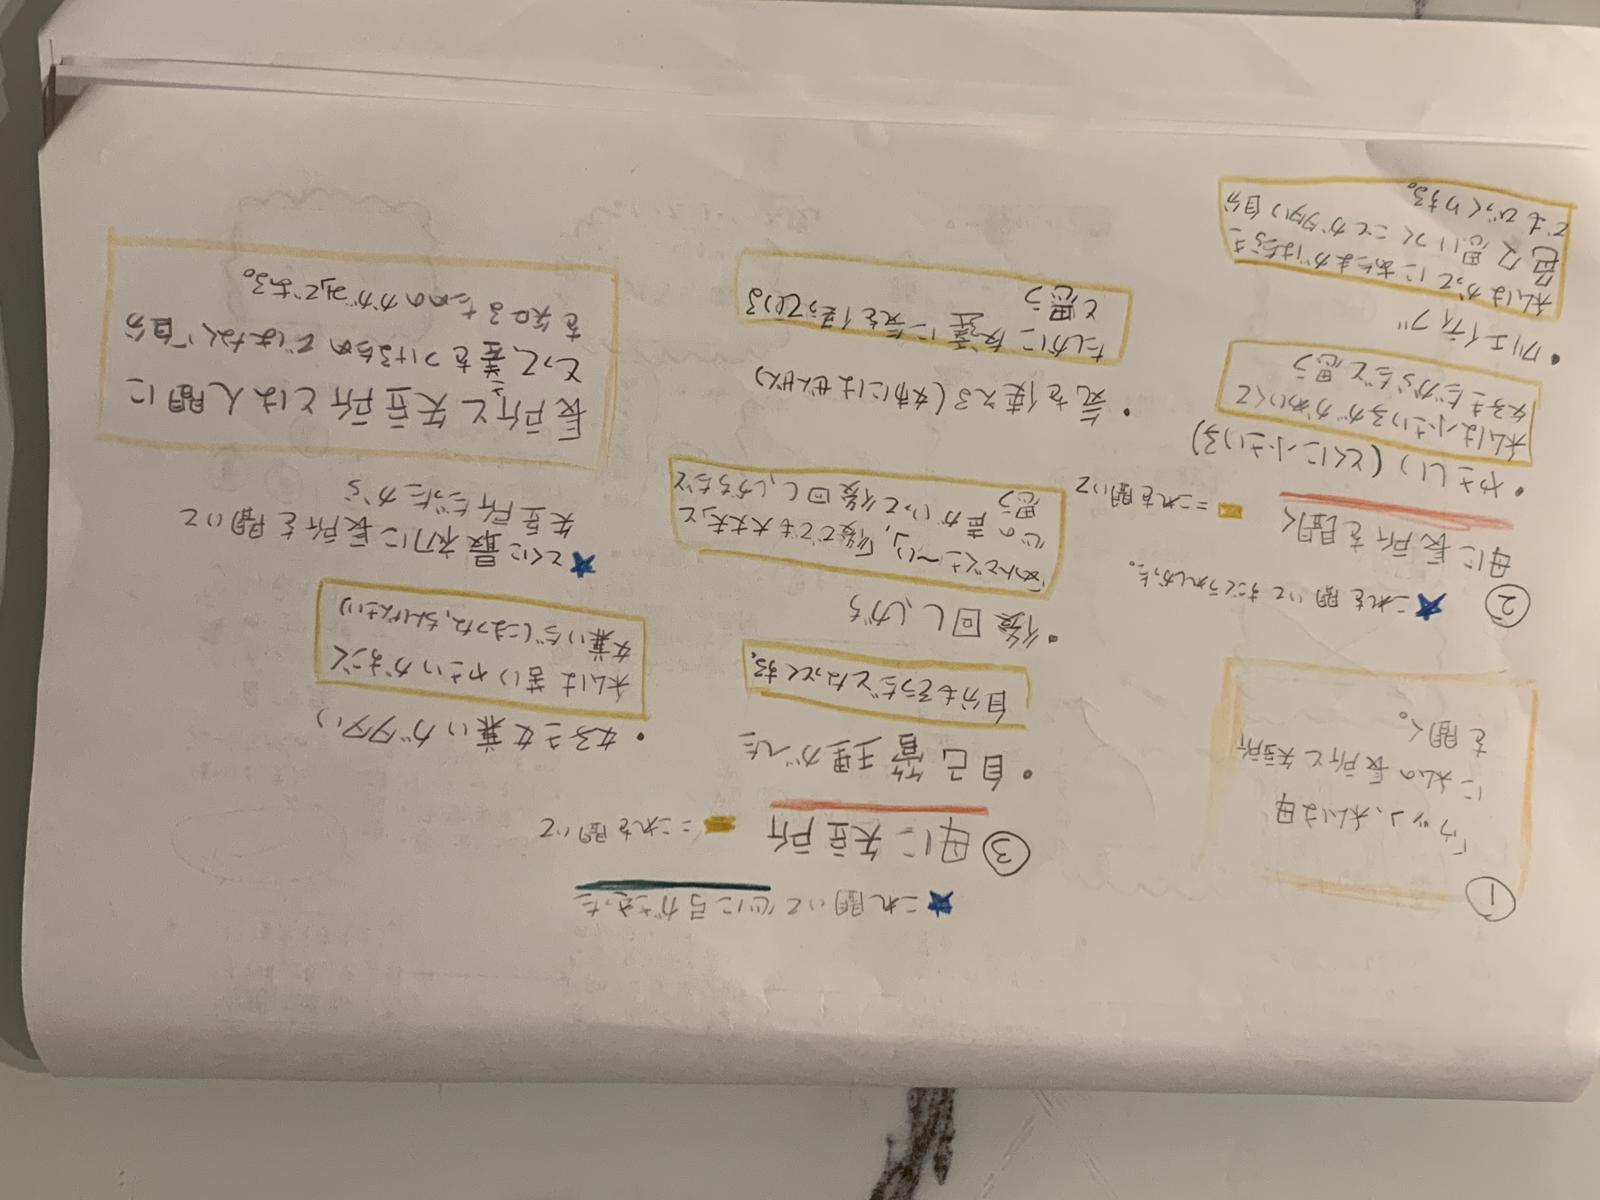 ①
「ウッ」、私は母
に私の長所と欠点所
を聞く。
② ★これを聞いてすごくうれしかった。
母に長所を聞く
■=これを聞いて
・やさしい(とくに小さい子)
私は小さい子がかわいくて
好きだからだと思う
・クリエイティブ
私はかってにあたまがはたらき
色々思いつくことが多い自分
でもびっくりする。
★これ聞いて心に弓がささった
③母に欠点所
■=これを聞いて
・自己管理がへた
自分もそうだとなっとくする。
・後回ししがち
「めんどくさ〜い」、「後ででも大丈夫」と
心の声がいって後回ししがちだと
思う
・気を使える(女母にはぜんぜん)
たしかに友達に気を使っている
と思う
・好き嫌いが多い
私は苦いやさいがすごく
嫌い(とくにまっちゃ、ちんげんさい)
★とくに最初に長所を聞いて
欠点所だったから
長所と欠点所とは人間に
とって、差をつけるためではなく自分
を知るためのかがみである。